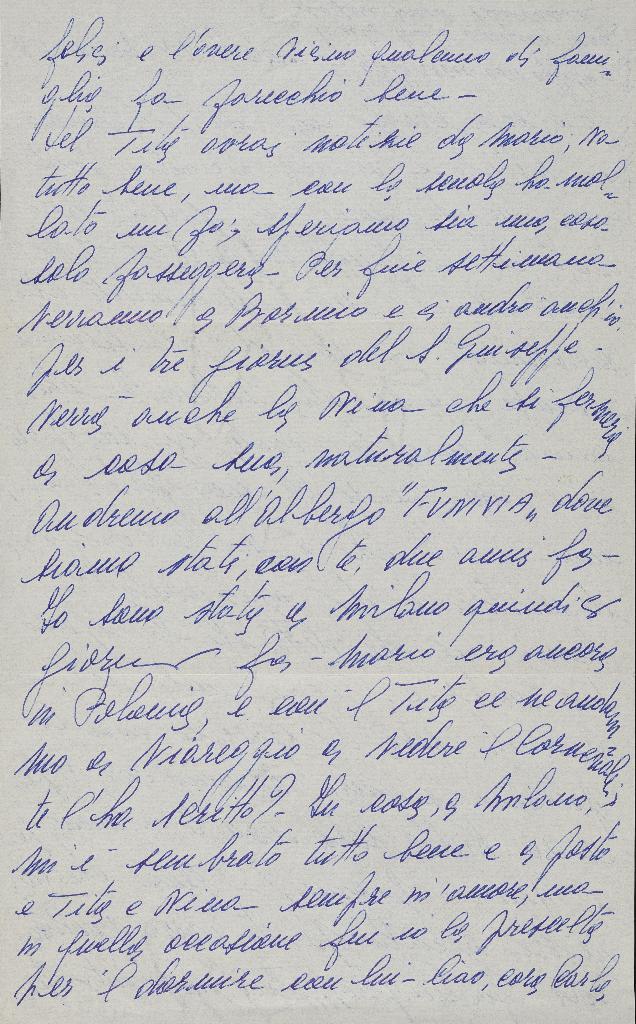 felici e l'avere vicino qualcuno di fami-
glia fa parecchio bene -
Del Tita avrai notizie da Mario, va
tutto bene, ma con la scuola ha mol-
lato un po'; speriamo sia una cosa
solo passeggera - Per fine settimana
verranno a Bormio e ci andrò anch'io
per i tre giorni del S. Giuseppe -
Verrà anche la Nina che si fermerà
a casa sua, naturalmente -
Andremo all'albergo "FUNIVIA" dove
siamo stati, con te, due anni fa -
Io sono stata a Milano quindici
giorni fa - Mario era ancora
in Polonia, e con il Tita ce ne andam
mo a Viareggio a vedere il Carnevale
te l'ha scritto? - In casa, a Milano,
mi è sembrato tutto bene e a posto
e Tita e Nina sempre in amore, ma
in quella occasione fui io la prescelta
per il dormire con lui - Ciao, cara Carla